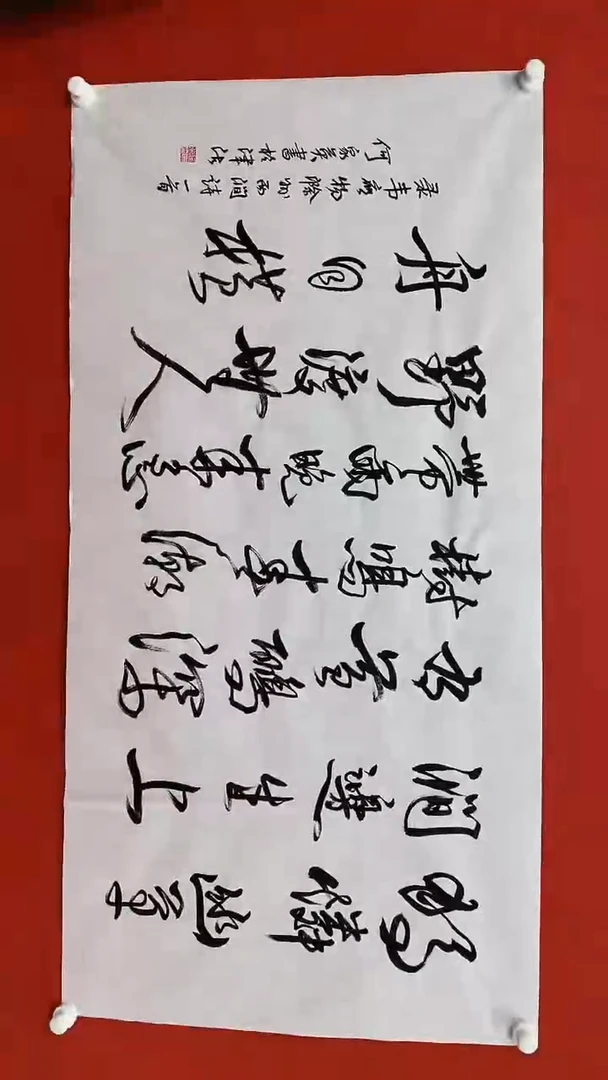 獨憐幽草
澗邊生上
有黃鸝深
樹鳴春潮
帶雨晚來急
野渡無人
舟自橫
录韋應物滁州西澗詩一首
何家英書於津沽